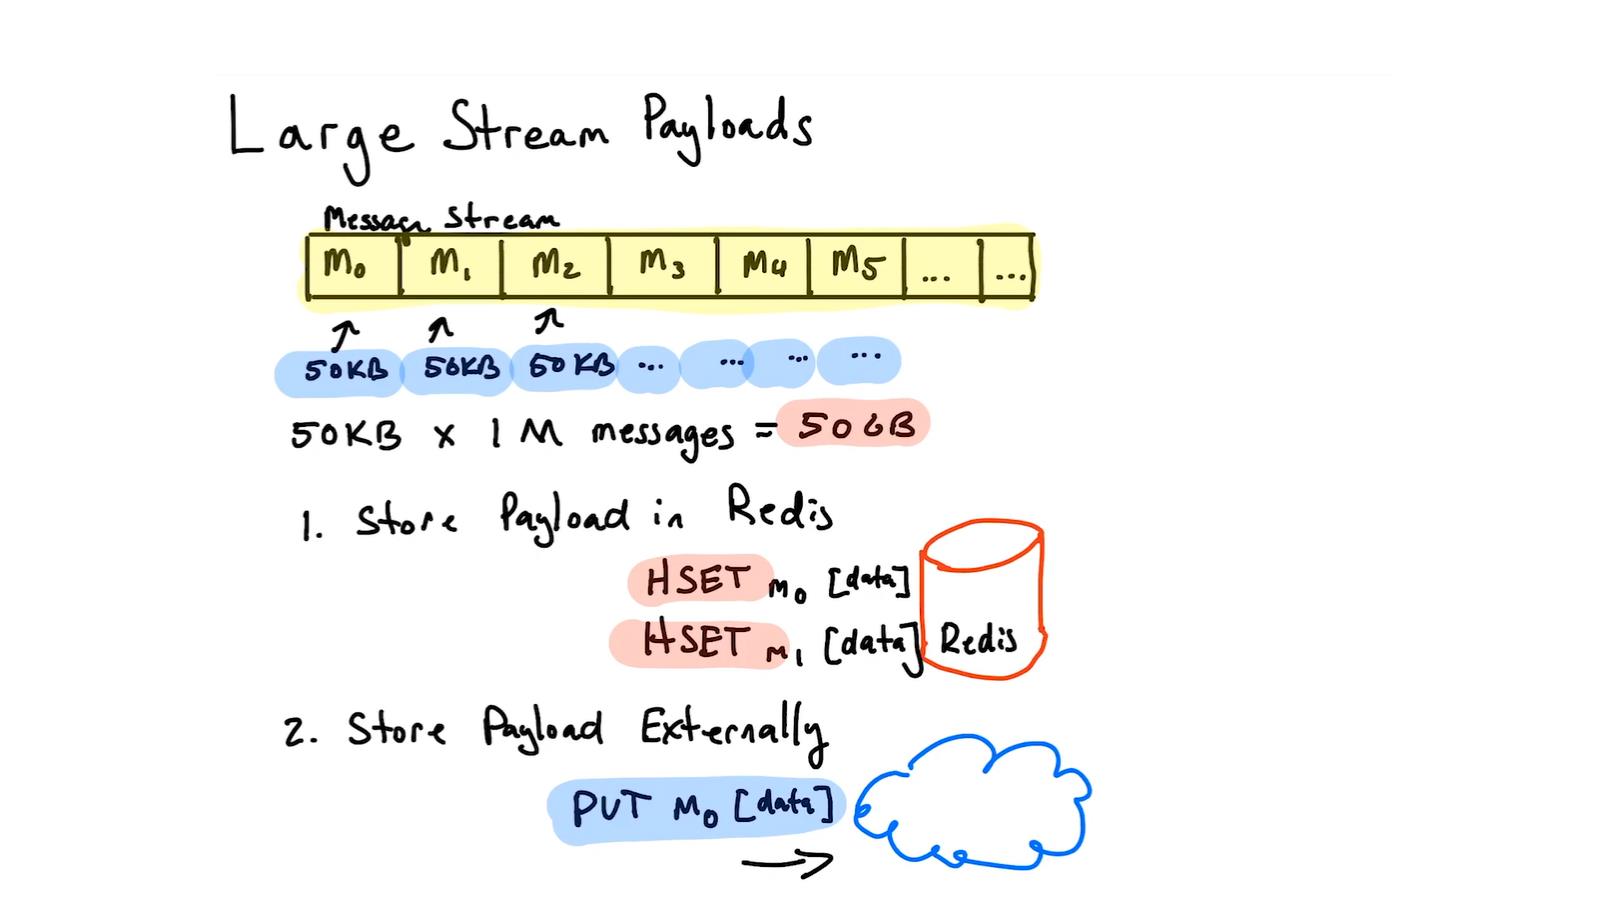 Large Stream Payloads
Message Stream
M0 M1 M2 M3 M4 M5 ... ...
50KB 50KB 50KB ... ... ... ...
50KB x 1M messages = 50GB
1. Store Payload in Redis
HSET M0 [data]
HSET M1 [data] Redis
2. Store Payload Externally
PUT M0 [data]